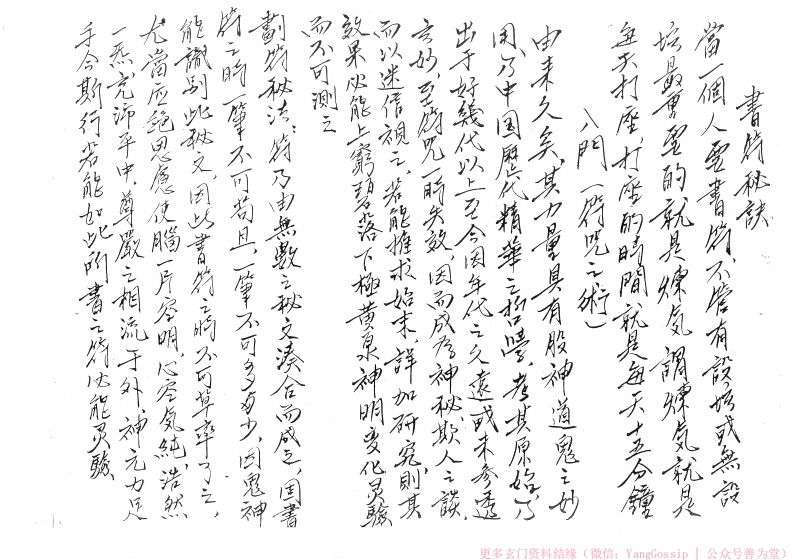 書符秘訣
當一個人要書符不管有設壇或無設
壇最重要的就是煉気謂煉気就是
每天打座,打座的時間就是每天十五分鐘
入門(符咒之術)
由来久矣,其力量具有股神道鬼之妙
用,乃中国歷代精華之哲學,考其原始,乃
出于好幾代以上至今因年代之久遠或未参透
玄妙,至符咒一時失效,因而成為神秘欺人之談,
而以迷信視之,若能推求始末,詳加研究,則其
效果必能上窮碧落下極黄泉神明变化灵驗
而不可測之
劃符秘法:符乃由無數之秘文湊合而成之,因書
符之時一筆不可苟且,一筆不可多或少,因鬼神
能識别此秘文,因此書符之時不可草率了之,
尤當应絕思慮使腦一片空明,心空気純,浩然
一炁,充沛乎中,尊嚴之相流于外,神元力足
手令斯行若能如此所書之符必能灵驗.
更多玄门资料结缘(微信:YangGossip | 公众号善为堂)